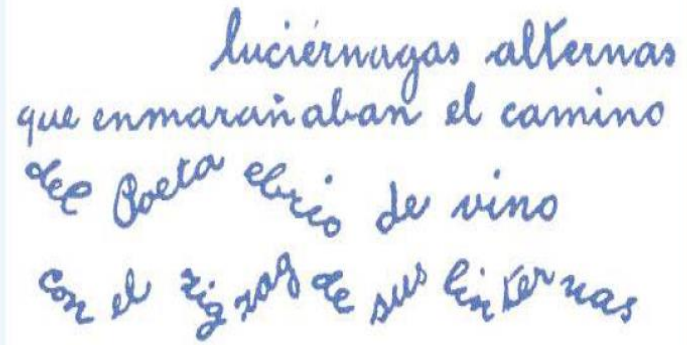 luciérnagas alternas
que enmarañaban el camino
del Poeta ebrio de vino
con el zigzag de sus linternas